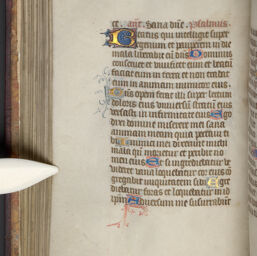 te. ant. Sana dñe. Psalmus.
Beatus qui intelligit super
egenum et pauperem in die
mala liberabit eū dñs Dominus
conseruet eum et uiuificet eum et beatū
faciat eum in terra et non tradat
eum in animam inimicorū eius
opem ferat illi super lectum
doloris eius uniuersū stratū eius
uersasti in infirmitate eius Ego
dixi domine miserere mei sana
animam meam quia peccaui ti
bi inimici mei dixerūt michi
mala qñ morietur et peribit no
men eius Et si ingrediebatur ut
uideret uana loquebatur cor eius cō
gregauit iniquitatem sibi Egre
diebatur foras et loquebatur in id
ipm̄ Aduersum me susurrabāt